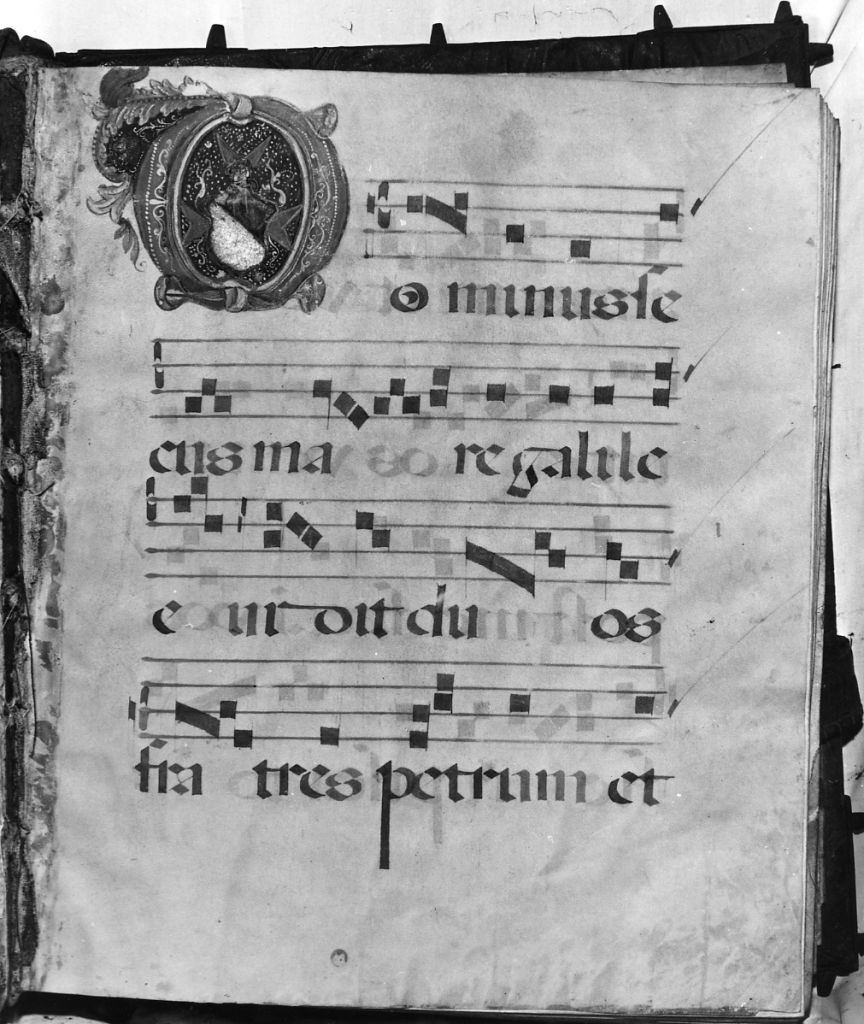 Dominus se
cus ma re galile
e vi dit du os
fra tres petrum et